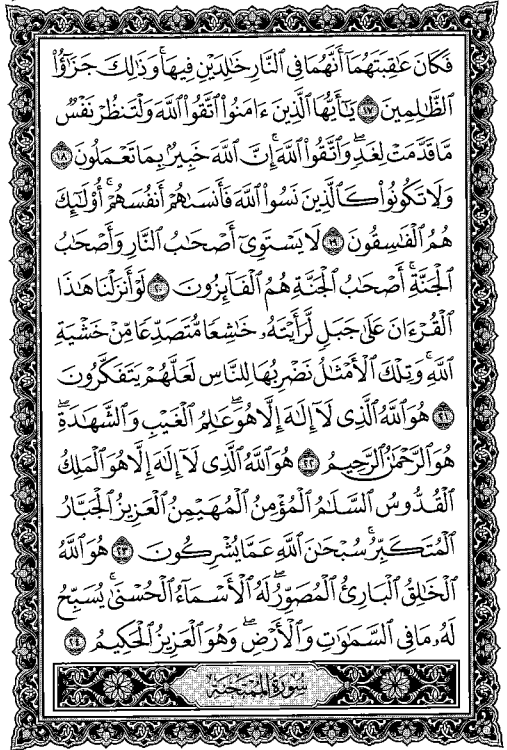 فَكَانَ عَٰقِبَتَهُمَآ أَنَّهُمَا فِي ٱلنَّارِ خَٰلِدَيۡنِ فِيهَاۚ وَذَٰلِكَ جَزَٰٓؤُاْ
ٱلظَّٰلِمِينَ ١٧ يَٰٓأَيُّهَا ٱلَّذِينَ ءَامَنُواْ ٱتَّقُواْ ٱللَّهَ وَلۡتَنظُرۡ نَفۡسٞ
مَّا قَدَّمَتۡ لِغَدٖۖ وَٱتَّقُواْ ٱللَّهَۚ إِنَّ ٱللَّهَ خَبِيرُۢ بِمَا تَعۡمَلُونَ ١٨
وَلَا تَكُونُواْ كَٱلَّذِينَ نَسُواْ ٱللَّهَ فَأَنسَىٰهُمۡ أَنفُسَهُمۡۚ أُوْلَٰٓئِكَ
هُمُ ٱلۡفَٰسِقُونَ ١٩ لَا يَسۡتَوِيٓ أَصۡحَٰبُ ٱلنَّارِ وَأَصۡحَٰبُ
ٱلۡجَنَّةِۚ أَصۡحَٰبُ ٱلۡجَنَّةِ هُمُ ٱلۡفَآئِزُونَ ٢٠ لَوۡ أَنزَلۡنَا هَٰذَا
ٱلۡقُرۡءَانَ عَلَىٰ جَبَلٖ لَّرَأَيۡتَهُۥ خَٰشِعٗا مُّتَصَدِّعٗا مِّنۡ خَشۡيَةِ
ٱللَّهِۚ وَتِلۡكَ ٱلۡأَمۡثَٰلُ نَضۡرِبُهَا لِلنَّاسِ لَعَلَّهُمۡ يَتَفَكَّرُونَ
٢١ هُوَ ٱللَّهُ ٱلَّذِي لَآ إِلَٰهَ إِلَّا هُوَۖ عَٰلِمُ ٱلۡغَيۡبِ وَٱلشَّهَٰدَةِۖ
هُوَ ٱلرَّحۡمَٰنُ ٱلرَّحِيمُ ٢٢ هُوَ ٱللَّهُ ٱلَّذِي لَآ إِلَٰهَ إِلَّا هُوَ ٱلۡمَلِكُ
ٱلۡقُدُّوسُ ٱلسَّلَٰمُ ٱلۡمُؤۡمِنُ ٱلۡمُهَيۡمِنُ ٱلۡعَزِيزُ ٱلۡجَبَّارُ
ٱلۡمُتَكَبِّرُۚ سُبۡحَٰنَ ٱللَّهِ عَمَّا يُشۡرِكُونَ ٢٣ هُوَ ٱللَّهُ
ٱلۡخَٰلِقُ ٱلۡبَارِئُ ٱلۡمُصَوِّرُۖ لَهُ ٱلۡأَسۡمَآءُ ٱلۡحُسۡنَىٰۚ يُسَبِّحُ
لَهُۥ مَا فِي ٱلسَّمَٰوَٰتِ وَٱلۡأَرۡضِۖ وَهُوَ ٱلۡعَزِيزُ ٱلۡحَكِيمُ ٢٤
سُورَةُ المُمْتَحنَة